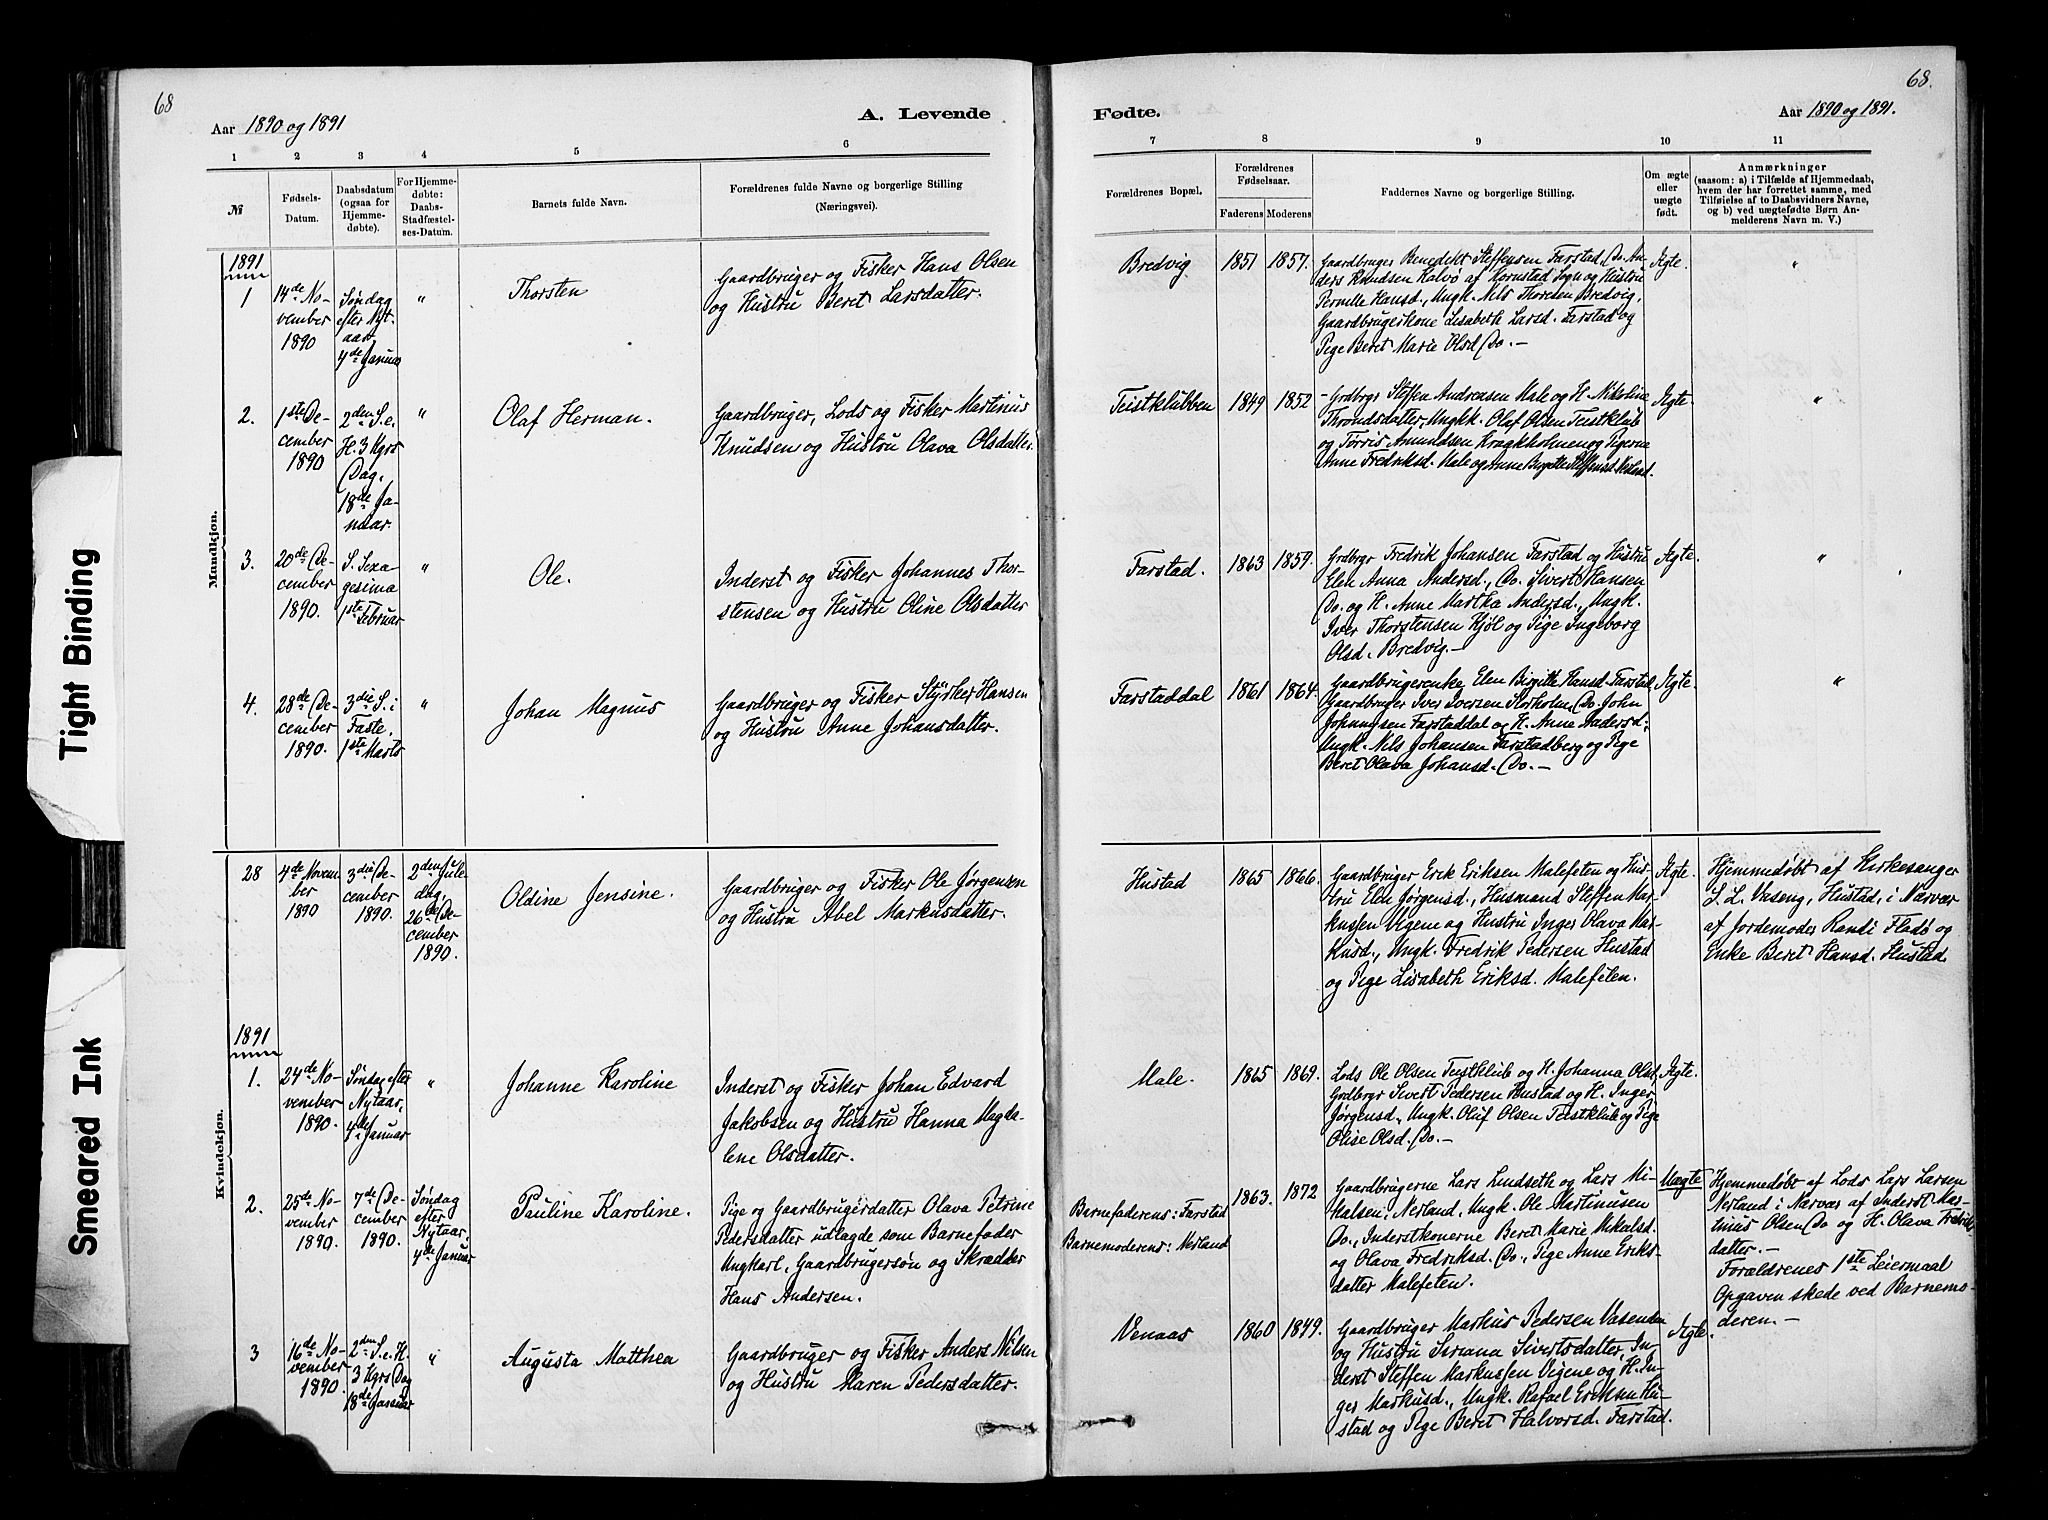 68
68.
Aar 1890 og 1891
A. Levende
Fødte.
Aar 1890 og 1891.
1 2 3 4 5 6
7 8 9 10 11
№
Fødsels-
Datum.
Daabsdatum
(ogsaa for
Hjemme-
døbte).
For Hjemme-
døbte:
Daabs-
Stadfæstel-
ses-Datum.
Barnets fulde Navn.
Forældrenes fulde Navne og borgerlige Stilling
(Næringsvei).
Forældrenes Bopæl.
Forældrenes
Fødselsaar.
Faderens
Moderens
Faddernes Navne og borgerlige Stilling.
Om ægte
eller
uægte
født.
Anmærkninger
(saasom: a) i Tilfælde af Hjemmedaab,
hvem der har forrettet samme, med
Tilføielse af to Daabsvidners Navne,
og b) ved uægtefødte Børn An-
melderens Navn m. V.)
Mandkjøn.
1891
1
14de No-
vember
1890
Søndag
efter Nyt-
aar,
4de Januar
"
Thorsten
Gaardbruger og Fisker Hans Olsen
og Hustru Beret Larsdatter.
Bredvig
1851
1857.
Gaardbruger Benedikt Steffensen Farstad, Do. An-
ders Knudsen Halvø af Kornstad Sogn og Hustru
Pernille Hansd., Ungk. Nils Thoresen Bredvig,
Gaardbrugerkone Lisabeth Larsd. Farstad og
Pige Beret Marie Olsd. Do. —
Ægte.
"
2.
1ste De-
cember
1890
2den S. e.
H. 3 Kgrs
Dag,
18de Ja-
nuar.
"
Olaf Herman.
Gaardbruger, Lods og Fisker Martinus
Knudsen og Hustru Olava Olsdatter.
Teistklubben
1849
1852
Grdbrgr Steffen Andreasen Male og H. Nikoline
Throndsdatter, Ungk. Olaf Olsen Teistklub
og Tørris Amundsen Kraakholmen og Pigerne
Anne Fredriksd. Male og Anne Birgitte Steffensd.
Ægte
"
3.
20de De-
cember
1890.
S. Sexa-
gesima
1ste Februar
"
Ole.
Inderst og Fisker Johannes Thor-
stensen og Hustru Oline Olsdatter
Farstad.
1863
1859.
Grdbrgr Fredrik Johansen Farstad og Hustru
Elen Anna Andersd., Do. Sivert Hansen
Do. og H. Anne Martha Andersd., Ungk.
Iver Thorstensen Kjøl og Pige Ingeborg
Olsd. Bredvig. —
Ægte.
"
4.
28de De-
cember
1890.
3die S. i
Faste,
1ste Marts
"
Johan Magnus
Gaardbruger og Fisker Styrker Hansen
og Hustru Anne Johansdatter.
Farstaddal
1861
1864.
Gaardbrugerenke Elen Birgitte Hansd. Farstad,
Gaardbruger Iver Iversen Storholm, Do. John
Johnnysen Farstaddal og H. Anna Andersd.
Ungk. Nils Johansen Farstadberg og Pige
Beret Olava Johansd. Do. —
Ægte.
"
Kvindekjøn.
28
4de Novem-
ber
1890
3die De-
cember
1890.
2den Jule-
dag,
26de De-
cember
1890.
Oldine Jensine.
Gaardbruger og Fisker Ole Jørgensen
og Hustru Abel Markusdatter.
Hustad
1865
1866.
Gaardbruger Erik Eriksen Malefeten og Hus-
tru Elen Jørgensd., Husmand Steffen Mar-
kussen Vigene og Hustru Inger Olava Mar-
kusd., Ungk. Fredrik Pedersen Hustad
og Pige Lisabeth Eriksd. Malefeten.
Ægte.
Hjemmedøbt af Kirkesanger
S. L. Vaseng, Hustad, i Nærvær
af Jordemoder Randi Fladø og
Enke Beret Hansd. Hustad.
1891
1.
24de No-
vember
1890.
Søndag efter
Nytaar,
4de Januar
"
Johanne Karoline
Inderst og Fisker Johan Edvard
Jakobsen og Hustru Hanna Magda-
lene Olsdatter.
Male.
1865
1869.
Lods Ole Olsen Teistklub og H. Johanna Olsd.,
Grdbrgr Sivert Pedersen Hustad og H. Inger
Jørgensd., Ungk. Oluf Olsen Teistklub og Pige
Olise Olsd. Do. —
Ægte.
2.
25de No-
vember
1890.
7de De-
cember
1890.
Søndag
efter
Nytaar,
4de Januar
Pauline Karoline.
Pige og Gaardbrugerdatter Olava Petrine
Pedersdatter udlagde som Barnefader
Ungkarl, Gaardbrugersøn og Skrædder
Hans Andersen.
Barnefaderens: Farstad
Barnemoderens: Nerland
1863.
1872
Gaardbrugerne Lars Lindseth og Lars Mi-
kalsen, Nerland, Ungk. Ole Martinusen
Do., Inderstkonerne Beret Marie Mikalsd.
og Olava Fredriksd. Do., Pige Anne Eriks-
datter Malefeten.
Uægte
Hjemmedøbt af Lods Lars Larsen
Nerland i Nærvær af Inderst Mar-
tinus Olsen Do og H. Olava Fredriks-
datter. —
Forældrenes 1ste Leiermaal
Opgaven skede ved Barnemo-
deren. —
3
16de No-
vember
1890.
2den S. e. H.
3 Kgrs Dag
18de Januar
"
Augusta Matthea
Gaardbruger og Fisker Anders Nilsen
og Hustru Maren Pedersdatter.
Venaas
1860
1849.
Gaardbruger Markus Pedersen Vasenden
og Hustru Siriana Sivertsdatter, In-
derst Steffen Markussen Vigene og H. In-
ger Markusd., Ungk. Rafael Eriksen Hu-
stad og Pige Beret Halvorsd. Farstad.
Ægte.
Tight Binding
Smeared Ink